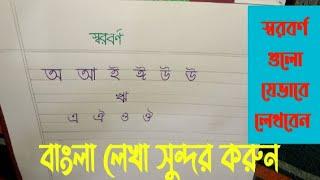 স্বরবর্ণ
অ আ ই ঈ উ ঊ
ঋ
এ ঐ ও ঔ
স্বরবর্ণ
গুলো
যেভাবে
লেখবেন
বাংলা লেখা সুন্দর করুন